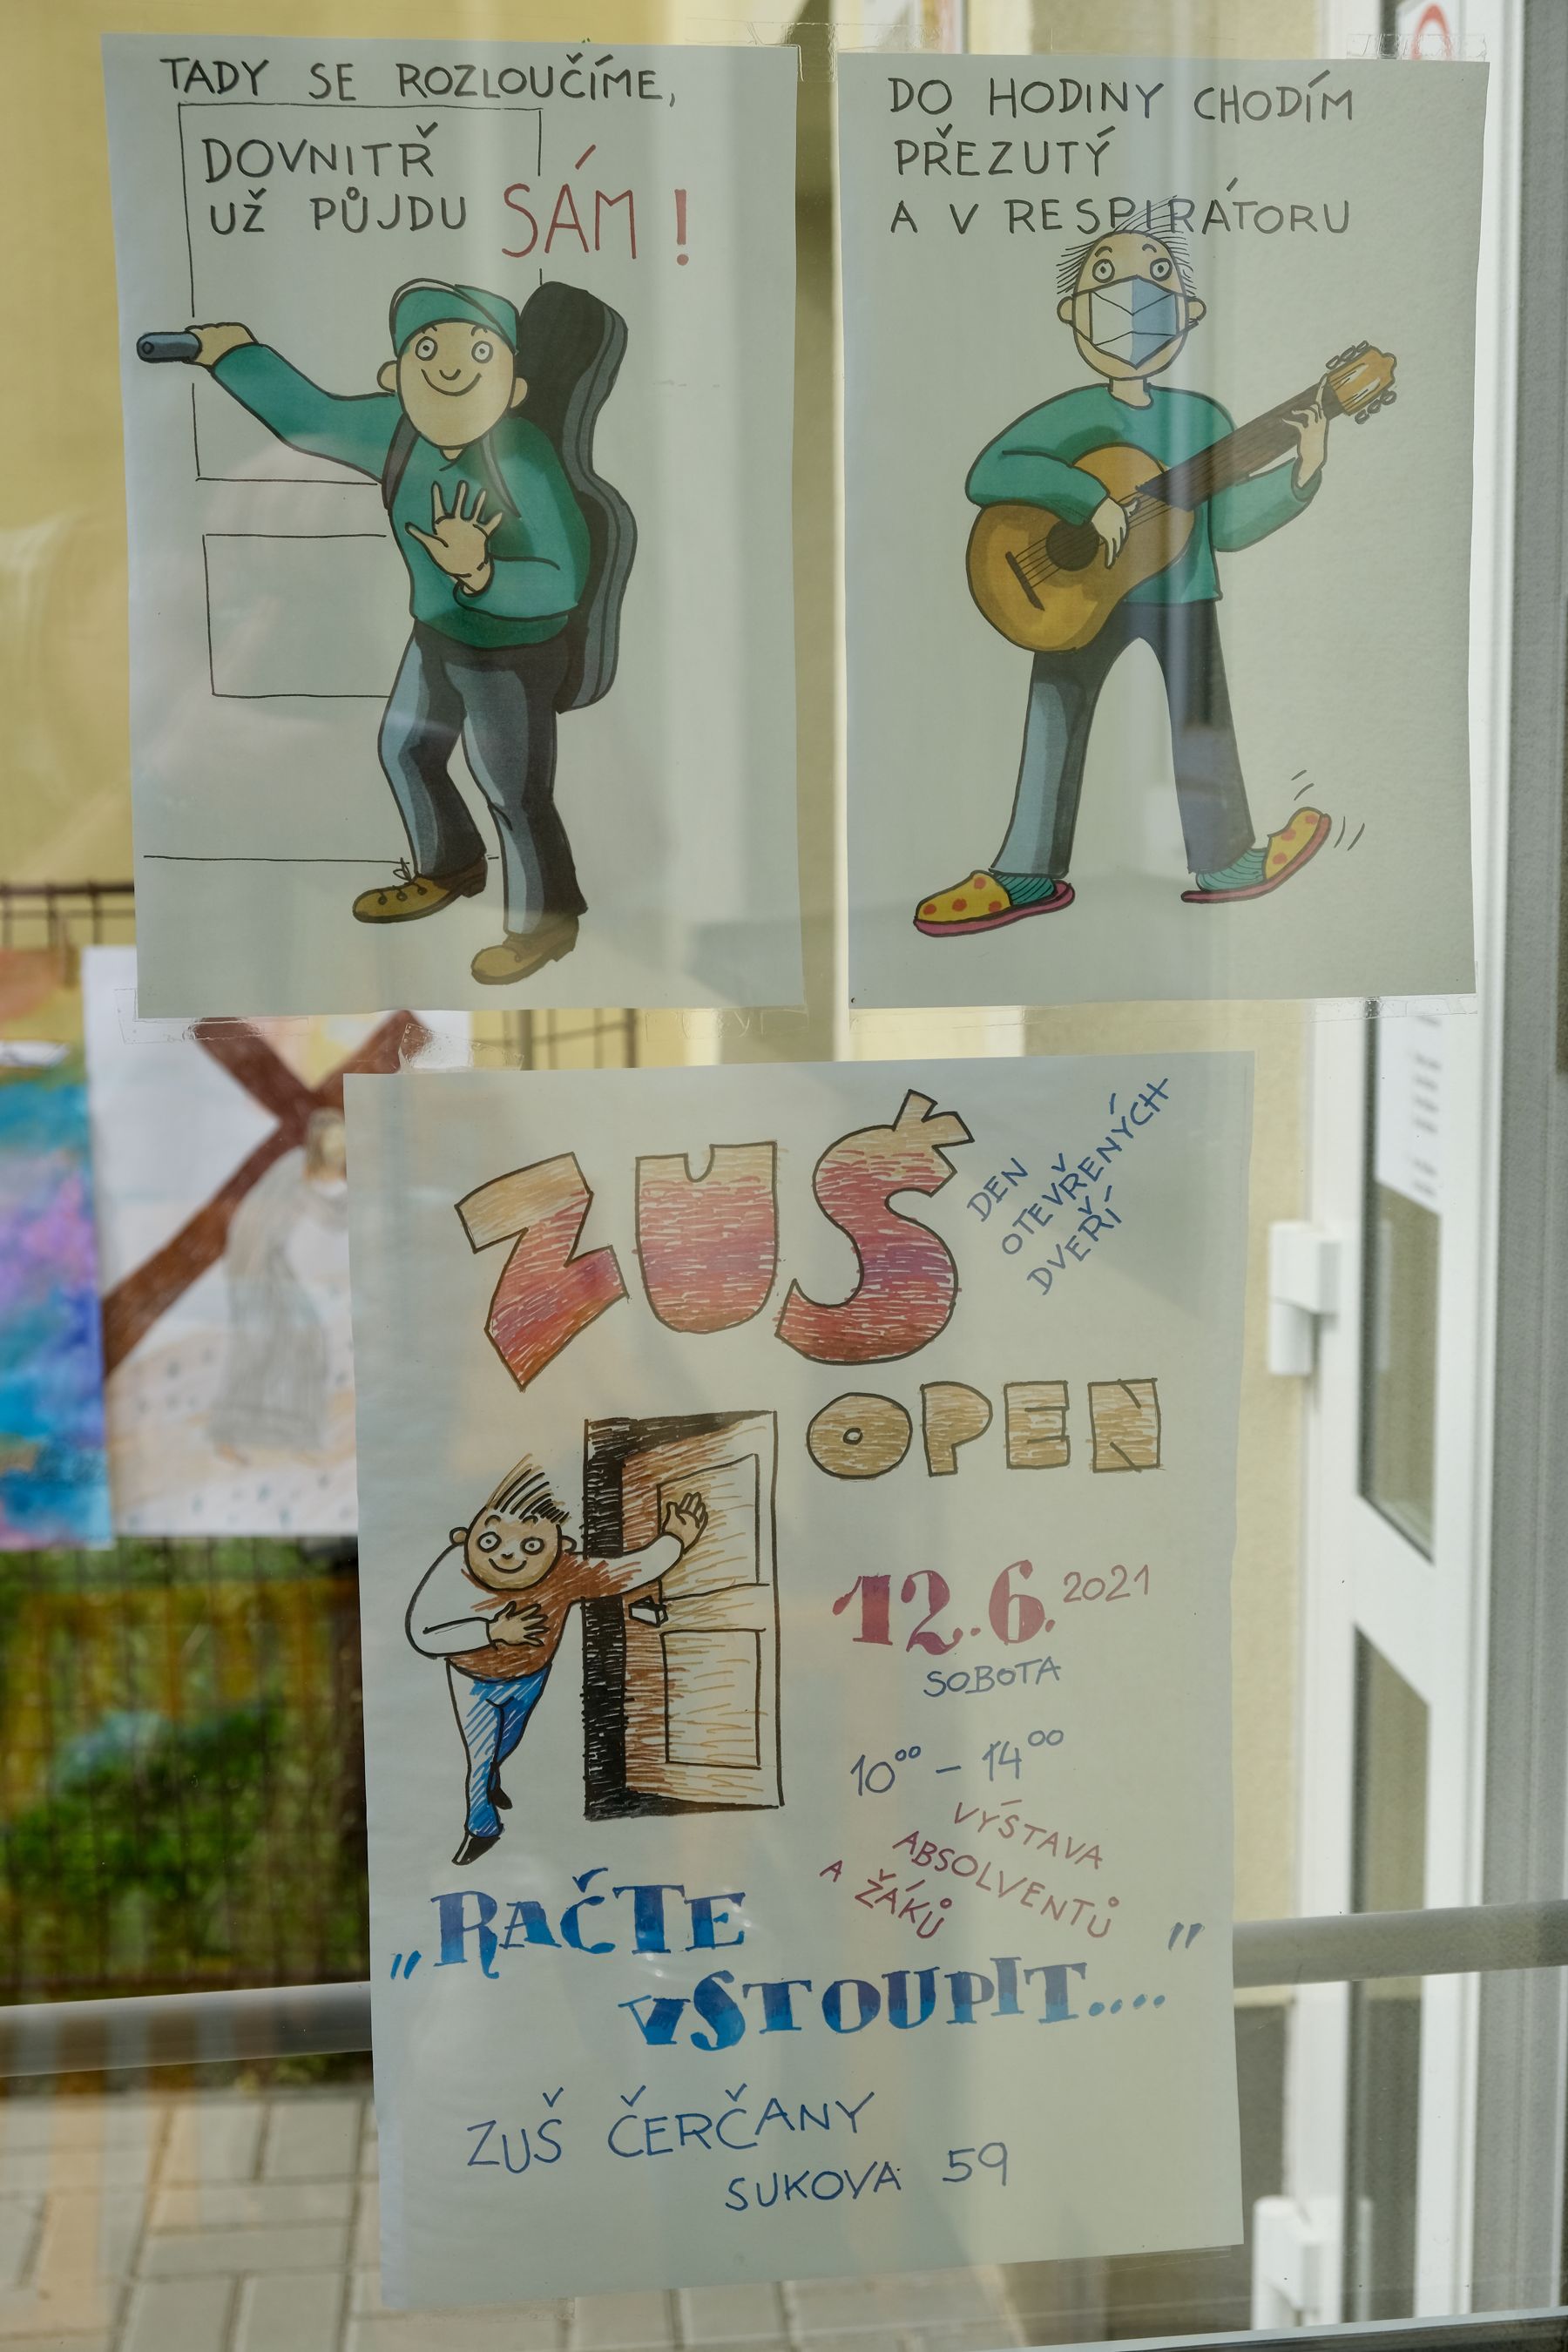 TADY SE ROZLOUČÍME,
DOVNITŘ
UŽ PŮJDU SÁM!
DO HODINY CHODÍM
PŘEZUTÝ
A V RESPIRÁTORU
ZUŠ
DEN
OTEVŘENÝCH
DVEŘÍ
OPEN
12.6. 2021
SOBOTA
10⁰⁰ – 14⁰⁰
VÝSTAVA
ABSOLVENTŮ
A ŽÁKŮ
„RAČTE
VSTOUPIT...."
ZUŠ ČERČANY
SUKOVA 59